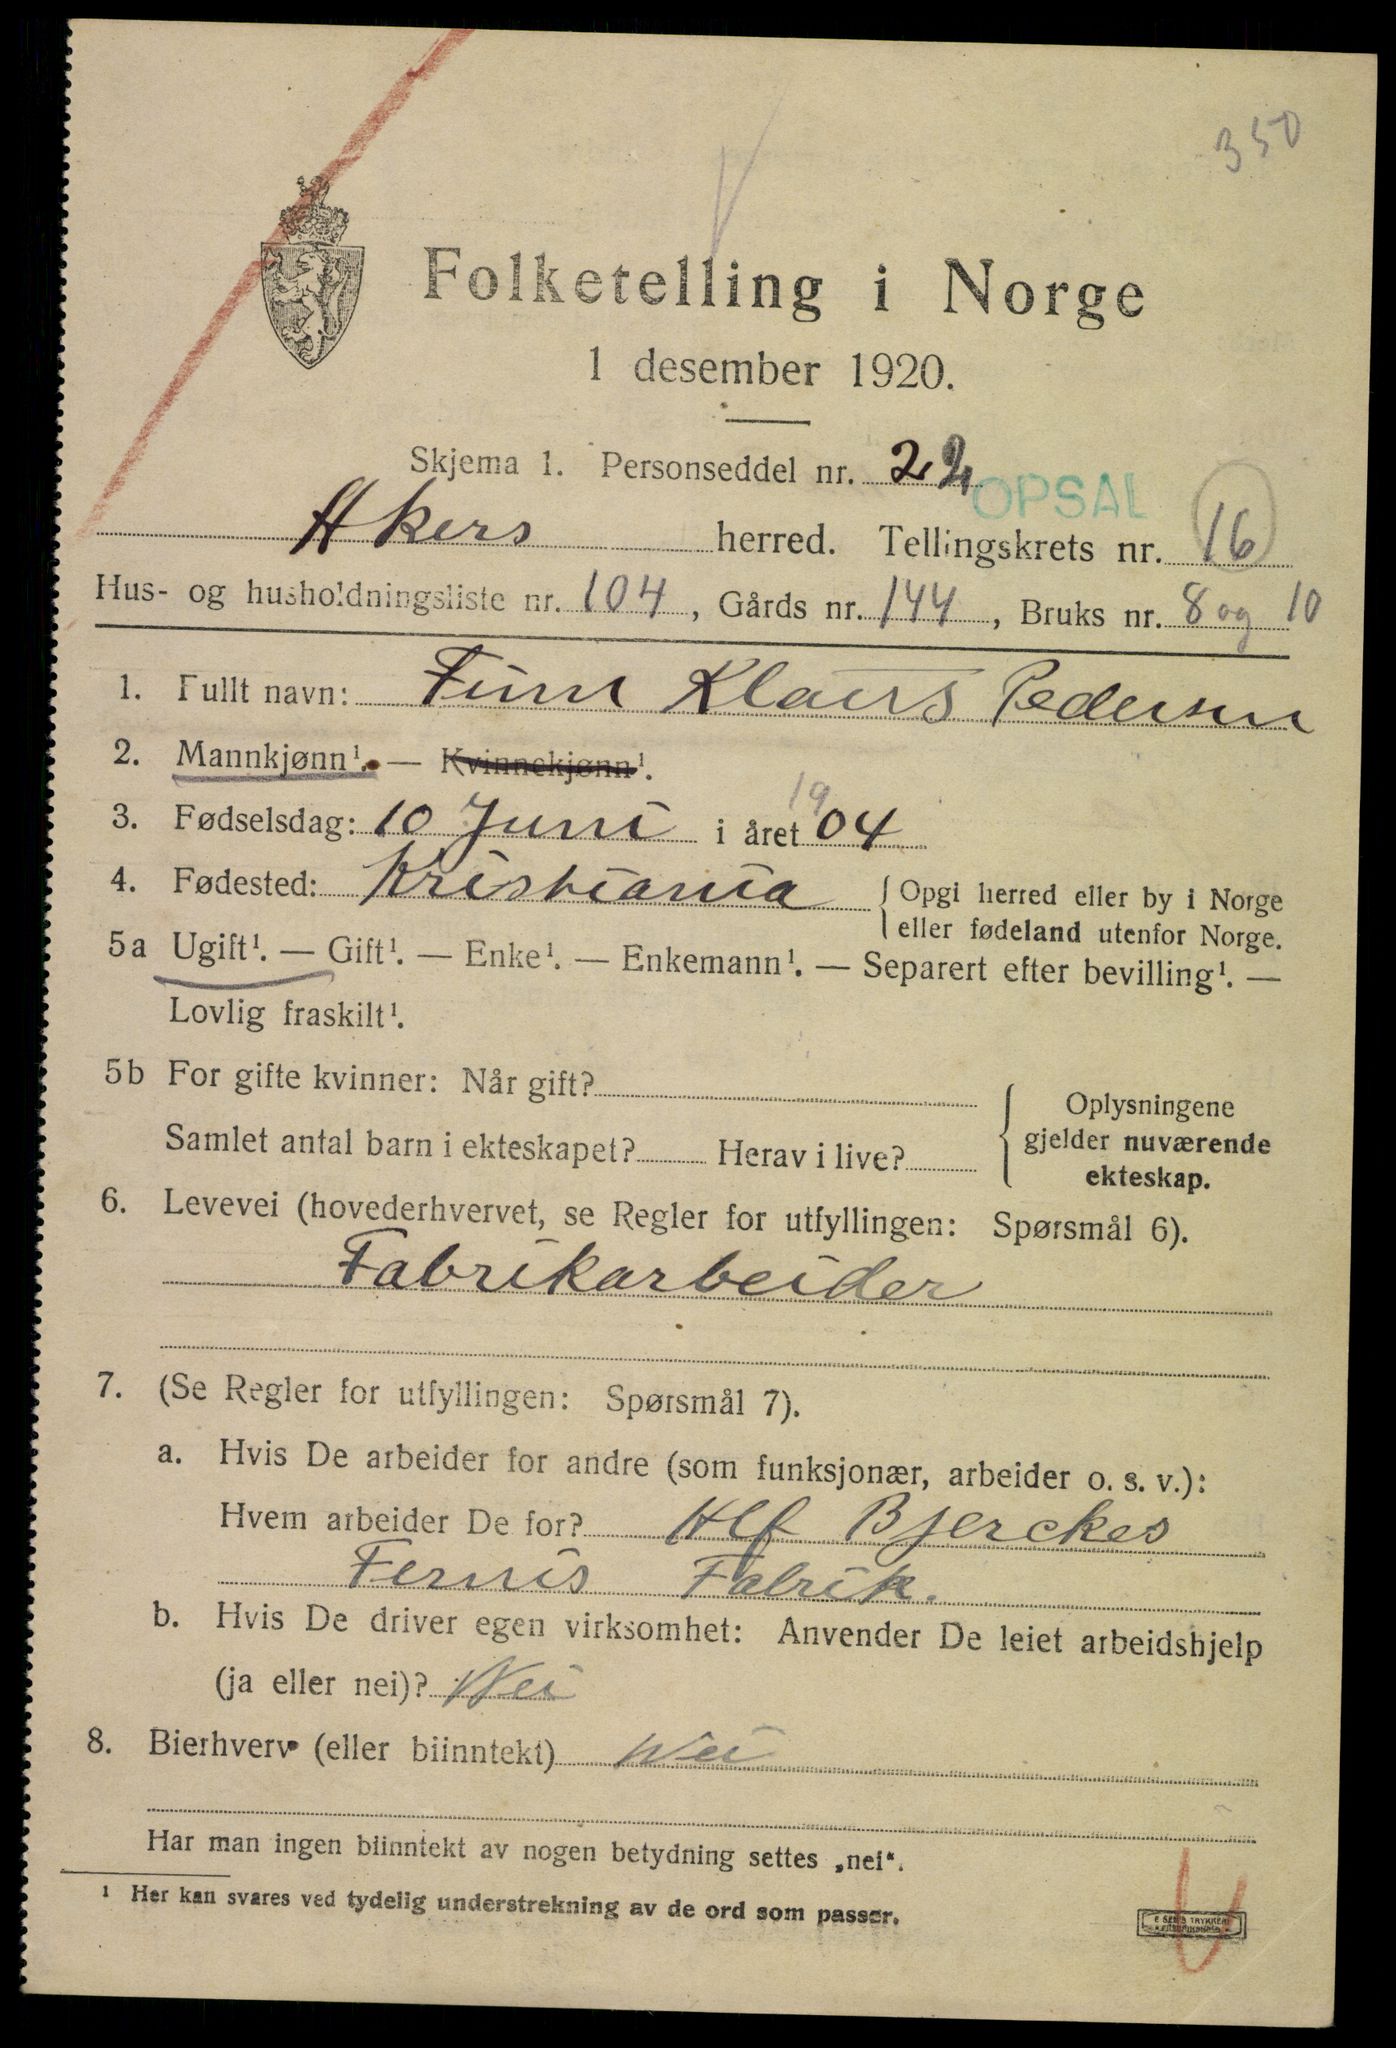 350
Folketelling i Norge
1 desember 1920.
Skjema 1. Personseddel nr. 22
OPSAL
Akers herred. Tellingskrets nr. 16
Hus- og husholdningsliste nr. 104, Gårds nr. 144, Bruks nr. 8 og 10
1. Fullt navn: Finn Klaus Pedersen
2. Mannkjønn¹. — Kvinnekjønn¹.
3. Fødselsdag: 10 Juni i året 1904
4. Fødested: Kristiania { Opgi herred eller by i Norge
eller fødeland utenfor Norge.
5a Ugift¹. — Gift¹. — Enke¹. — Enkemann¹. — Separert efter bevilling¹. —
Lovlig fraskilt¹.
5b For gifte kvinner: Når gift?
Samlet antal barn i ekteskapet? Herav i live?
Oplysningene
gjelder nuværende
ekteskap.
6. Levevei (hovederhvervet, se Regler for utfyllingen: Spørsmål 6).
Fabrikarbeider
7. (Se Regler for utfyllingen: Spørsmål 7).
a. Hvis De arbeider for andre (som funksjonær, arbeider o. s. v.):
Hvem arbeider De for? Alf Bjerckes
Fernis Fabrik.
b. Hvis De driver egen virksomhet: Anvender De leiet arbeidshjelp
(ja eller nei)? Nei
8. Bierhverv (eller biinntekt) Nei
Har man ingen biinntekt av nogen betydning settes „nei“.
¹ Her kan svares ved tydelig understrekning av de ord som passer.